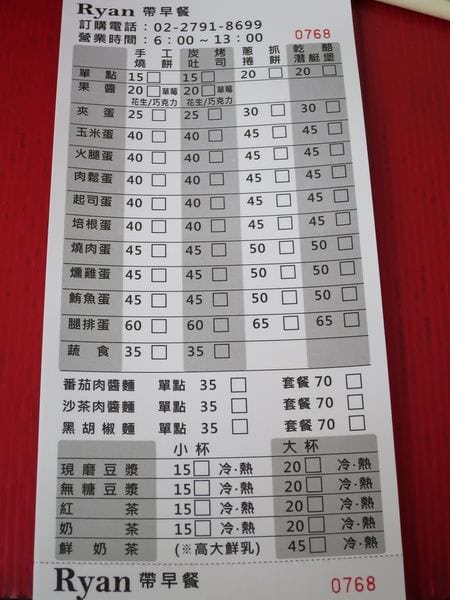 Ryan 帶早餐
訂購電話：02-2791-8699
營業時間：6：00~13：00 0768
手工燒餅 炭烤吐司 蔥抓捲餅 乾酪潛艇堡
單點 15 □ 15 □ 20 □ 20 □
果醬 20 □ 草莓 20 □ 草莓
花生/巧克力 花生/巧克力
夾蛋 25 □ 25 □ 30 □ 30 □
玉米蛋 40 □ 40 □ 45 □ 45 □
火腿蛋 40 □ 40 □ 45 □ 45 □
肉鬆蛋 40 □ 40 □ 45 □ 45 □
起司蛋 40 □ 40 □ 45 □ 45 □
培根蛋 40 □ 40 □ 45 □ 45 □
燒肉蛋 45 □ 45 □ 50 □ 50 □
燻雞蛋 45 □ 45 □ 50 □ 50 □
鮪魚蛋 45 □ 45 □ 50 □ 50 □
腿排蛋 60 □ 60 □ 65 □ 65 □
蔬食 35 □ 35 □
番茄肉醬麵 單點 35 □ 套餐 70 □
沙茶肉醬麵 單點 35 □ 套餐 70 □
黑胡椒麵 單點 35 □ 套餐 70 □
小杯 大杯
現磨豆漿 15 □ 冷·熱 20 □ 冷·熱
無糖豆漿 15 □ 冷·熱 20 □ 冷·熱
紅茶 15 □ 冷·熱 20 □ 冷·熱
奶茶 15 □ 冷·熱 20 □ 冷·熱
鮮奶茶 (※高大鮮乳) 45 □ 冷·熱
Ryan 帶早餐 0768